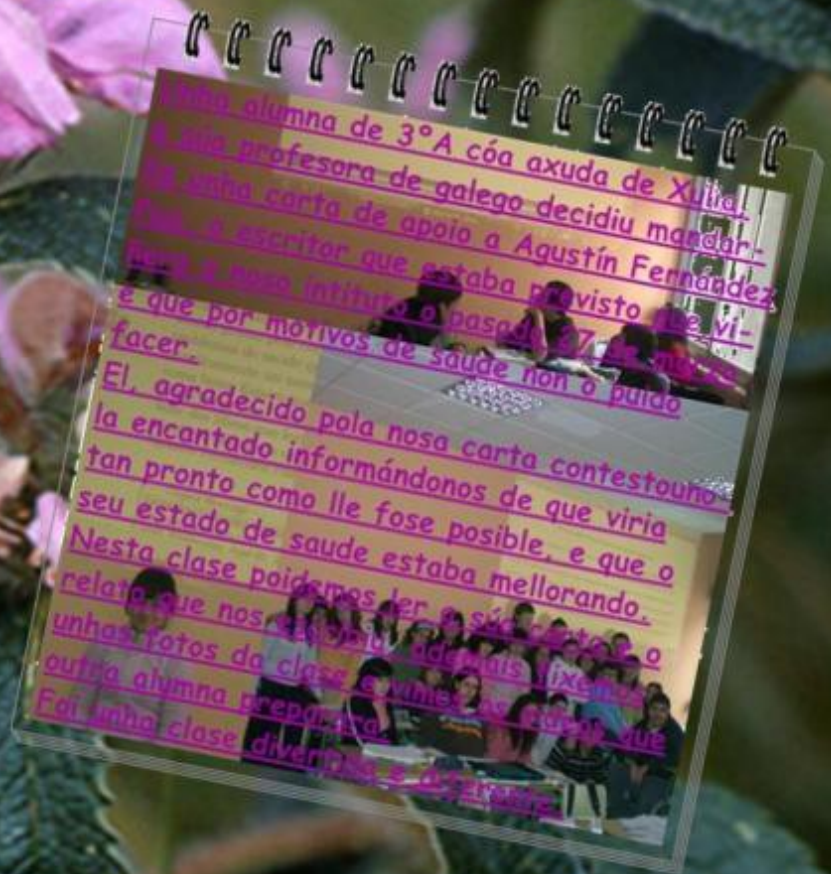 Unha alumna de 3ºA cóa axuda de Xulia,
a súa profesora de galego decidiu mandar-
lle unha carta de apoio a Agustín Fernández
Paz, o escritor que estaba previsto que vi-
ñera o noso intituto o pasado 27 de marzo
e que por motivos de saude non o puido
facer.
El, agradecido pola nosa carta contestouno-
la encantado informándonos de que viria
tan pronto como lle fose posible, e que o
seu estado de saude estaba mellorando.
Nesta clase poidemos ler a súa carta e o
relato que nos ademais fixemos
unhas fotos da clase e vimos os que
outra alumna preparara.
Foi unha clase divertida e diferente.